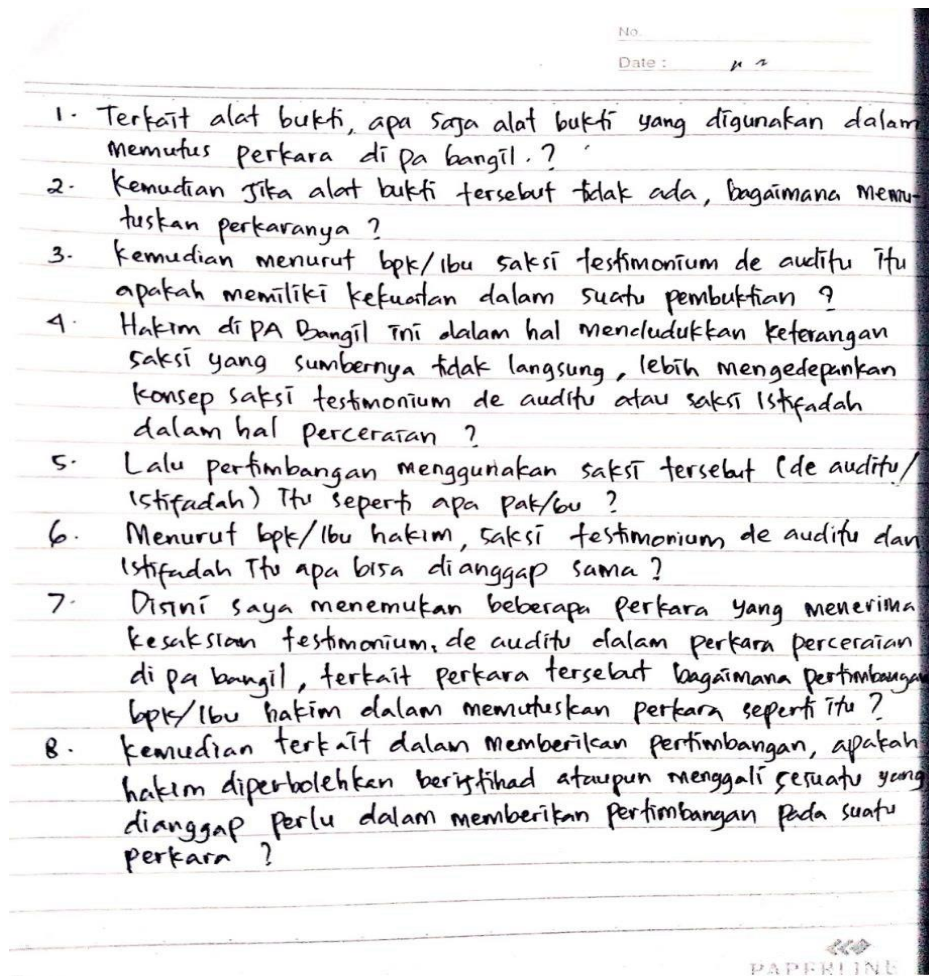 No.
Date :
1. Terkait alat bukti, apa saja alat bukti yang digunakan dalam
memutus perkara di pa bangil.?
2. Kemudian Jika alat bukti tersebut tidak ada, bagaimana memu-
tuskan perkaranya ?
3. Kemudian menurut bpk/ibu saksi testimonium de auditu itu
apakah memiliki kekuatan dalam suatu pembuktian ?
4. Hakim di PA Bangil ini dalam hal mendudukkan keterangan
saksi yang sumbernya tidak langsung, lebih mengedepankan
konsep saksi testimonium de auditu atau saksi istifadah
dalam hal perceraian ?
5. Lalu pertimbangan menggunakan saksi tersebut (de auditu/
istifadah) itu seperti apa pak/bu ?
6. Menurut bpk/ibu hakim, saksi testimonium de auditu dan
istifadah itu apa bisa dianggap sama ?
7. Disini saya menemukan beberapa perkara yang menerima
kesaksian testimonium, de auditu dalam perkara perceraian
di pa bangil, terkait perkara tersebut bagaimana pertimbangan
bpk/ibu hakim dalam memutuskan perkara seperti itu ?
8. Kemudian terkait dalam memberikan pertimbangan, apakah
hakim diperbolehkan berijtihad ataupun menggali sesuatu yang
dianggap perlu dalam memberikan pertimbangan pada suatu
perkara ?
PAPERLINE